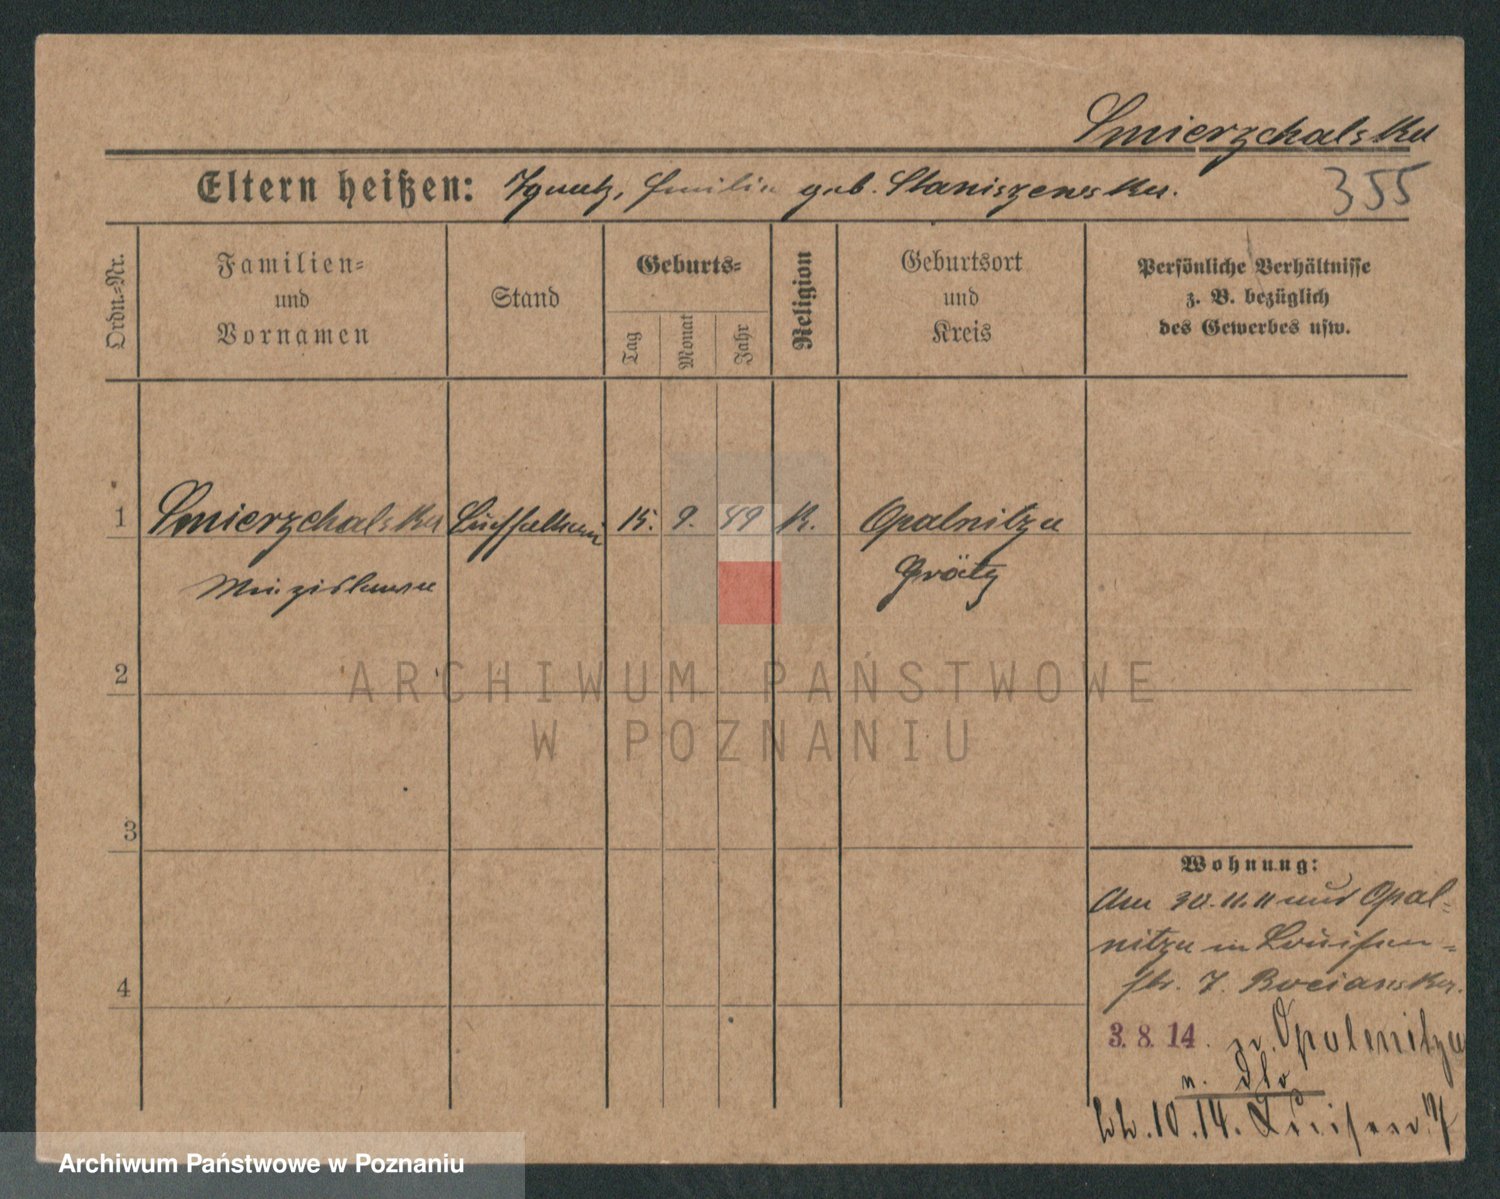 Smierzchalska
Eltern heißen: Ignatz, Emilie geb. Staniszewska.
355
Ordn.=Nr.
Familien=
und
Vornamen
Stand
Geburts=
Tag
Monat
Jahr
Religion
Geburtsort
und
Kreis
Persönliche Verhältnisse
z. B. bezüglich
des Gewerbes usw.
1 Smierzchalska 15. 9. 49 K. Opalnitza
Grätz
2
ARCHIWUM PAŃSTWOWE
W POZNANIU
3
Wohnung:
Am 30.11.11 aus Opal=
nitza in Louisen=
str. 7. Bocianska.
4
3. 8. 14. Opalenitza
10.14. Luisen
Archiwum Państwowe w Poznaniu